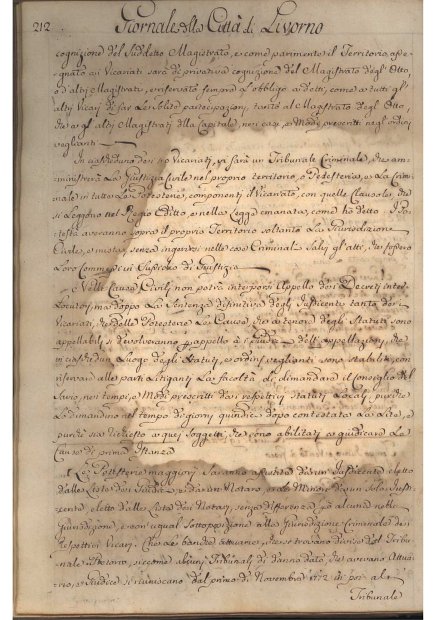 212 Giornale della Città di Livorno
cognizione del suddetto Magistrato, e come parimente il Territorio, asse-
gnato ai Vicariati sarà di privativa cognizione del Magistrato degl'Otto,
o d'altri Magistrati, e riservato sempre l'obbligo a detti, come a tutti gl'
altri Vicarj di far le solite partecipazioni, tanto al Magistrato degl'Otto,
che agl'altri Magistrati della Capitale, nei casi, e Modi prescritti negl'ordini
veglianti
In ciascheduno dei Vicariati, vi sarà un Tribunale Criminale, che am-
ministrerà la Giustizia Civile nel proprio territorio, o Podesteria, e la Crimi-
nale in tutte le Potesterie, componenti il Vicariato, con quelle Clausole, che
si Leggono nel Regio Editto, e nella Legge emanata, come ho detto. I Po-
testà averanno sopra il proprio Territorio soltanto la Giurisdizione
Civile, e mista, senza ingerirsi nelle cose Criminali, salvi gl'atti, che fossero
Loro Commessi in sussidio di Giustizia
Nelle Cause Civili, non potrà interporsi Appello dai Decreti Inter-
locutorj, ma doppo la Sentenza definitiva degl'Jusdicenti tanto dei
Vicariati, che delle Potesterie Le Cause, che a tenore degli Statuti sono
appellabili si devolveranno in appello a i Giudici dell'Appellazioni, che
in ciaschedun Luogo dagli Statuti, e ordini veglianti sono stabiliti, con
riservare alle parti Litiganti La facoltà di dimandare il Consiglio del
Savio, nei tempi, e Modi prescritti dai respettivi Statuti Locali, purchè
Lo dimandino nel tempo di giorni quindici dopo contestata La Lite, e
purchè sia diretto a quei soggetti, che sono abilitati a giudicare Le
Cause di prima Istanza
Le Potesterie maggiori saranno assistite da un Jusdicente eletto
dalla Lista dei Giudici, e da un Notaro, e le Minori da un solo Jusdi-
cente, eletto dalla Lista dei Notari, senza differenza, in alcuna nella
Giurisdizione, e con egual sottoposizione alla Giurisdizione Criminale dei
Respettivi Vicari. Che le bandite attuarie, che si trovano divise dal Tribu-
nale Pretorio, siccome alcuni Tribunali di danno dato, che avevano Attua-
rio, e Giudice si riuniscano dal primo di Novembre 1772 in poi al
Tribunale